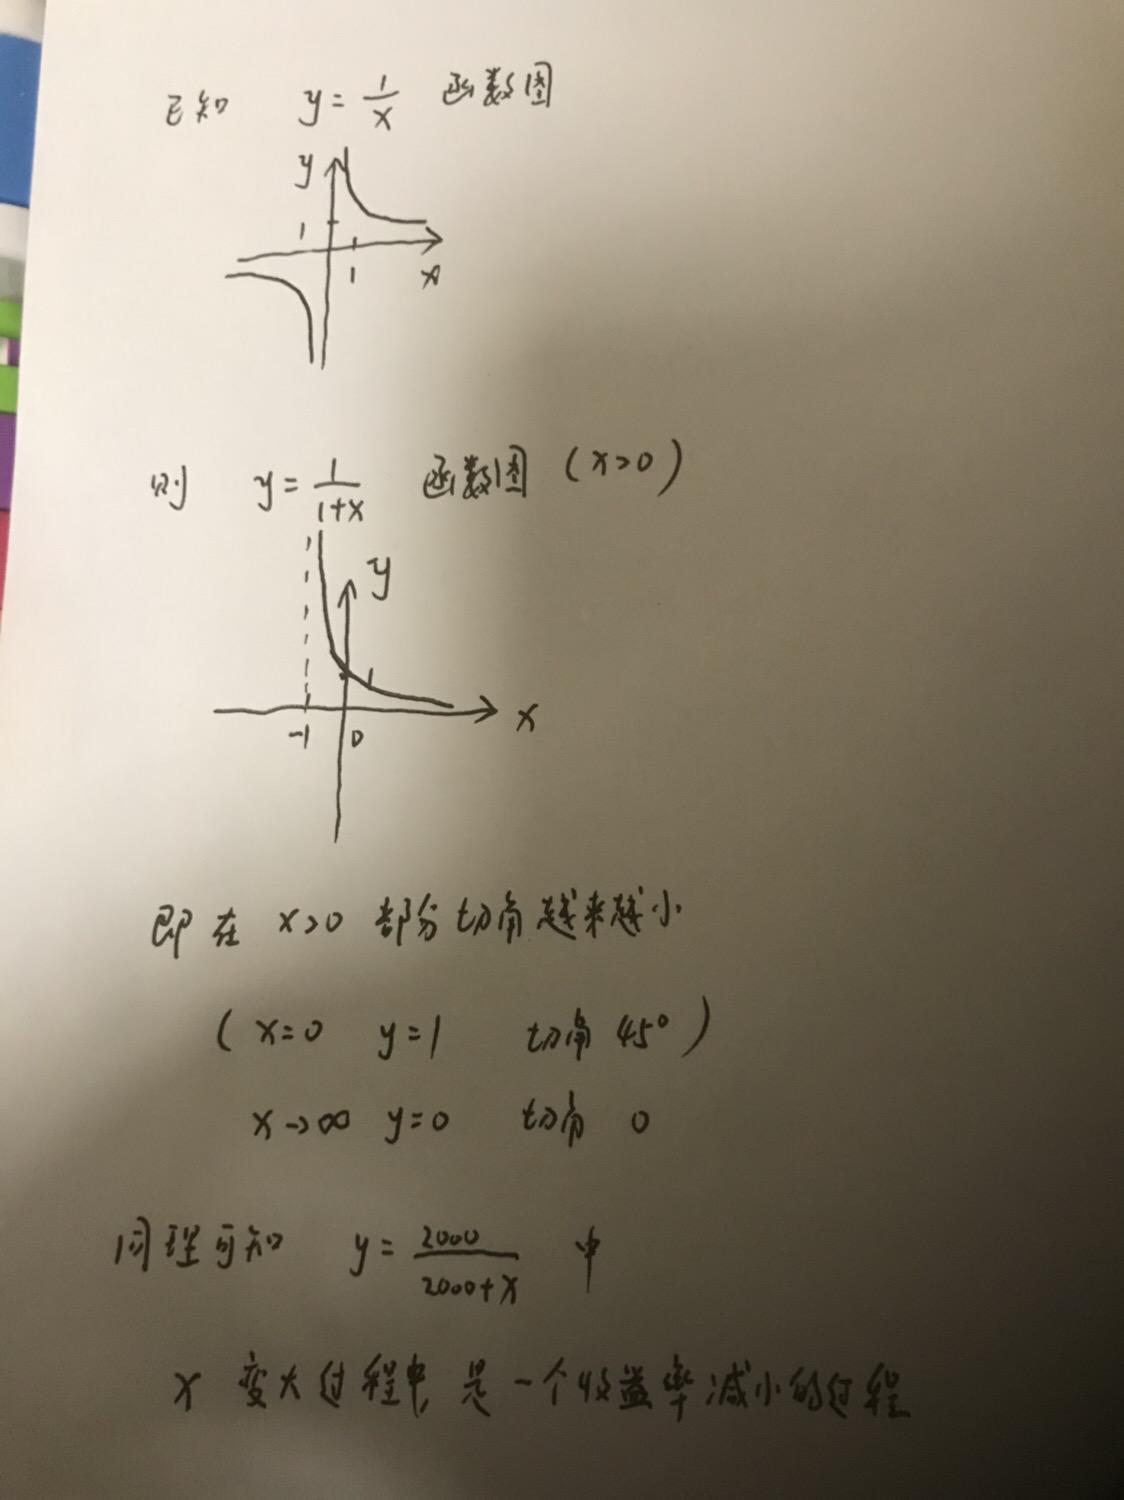 已知 y = 1/x 函数图
y
1
1 x
则 y = 1/(1+x) 函数图 (x>0)
y
1
-1 0 x
即在 x>0 部分切角越来越小
(x=0 y=1 切角 45°)
x→∞ y=0 切角 0
同理可知 y = 2000/(2000+x) 中
x 变大过程中, 是一个收益率减小的过程